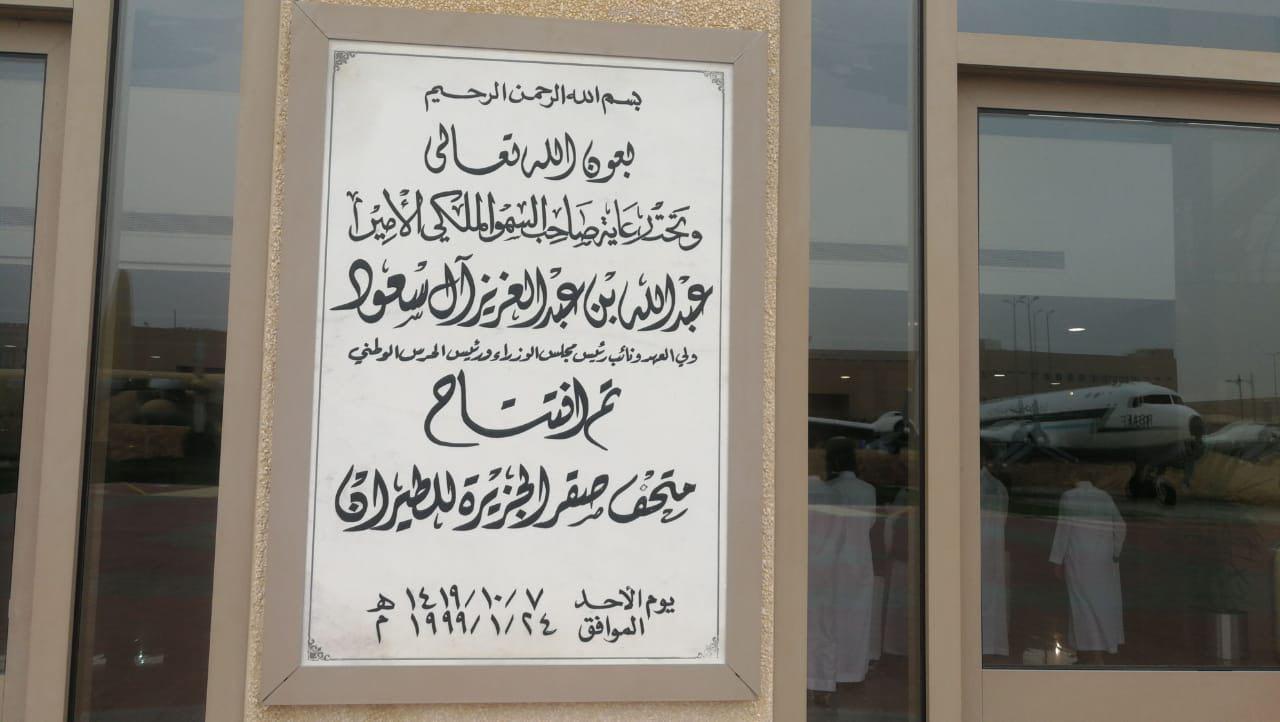 بسم الله الرحمن الرحيم
بعون الله تعالى
وتحت رعاية صاحب السمو الملكي الأمير
عبد الله بن عبد العزيز آل سعود
ولي العهد ونائب رئيس مجلس الوزراء ورئيس الحرس الوطني
تم افتتاح
متحف صقر الجزيرة للطيران
يوم الأحد ٧/١٠/١٤١٩ هـ
الموافق ٢٤/١/١٩٩٩ م